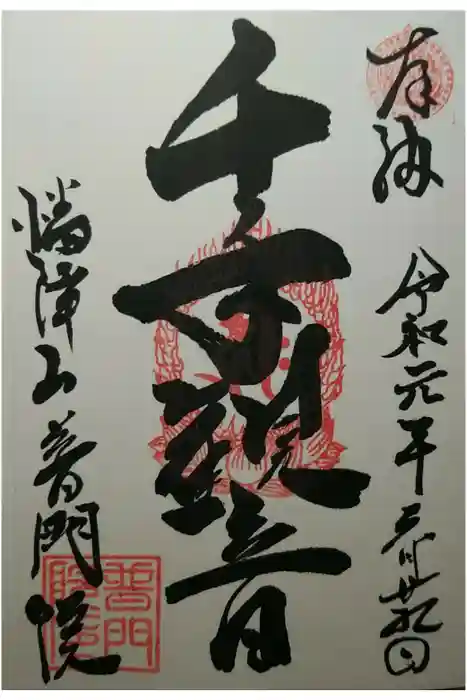 奉納
令和元年五月廿九日
千手觀音
山普門院
普門
院印